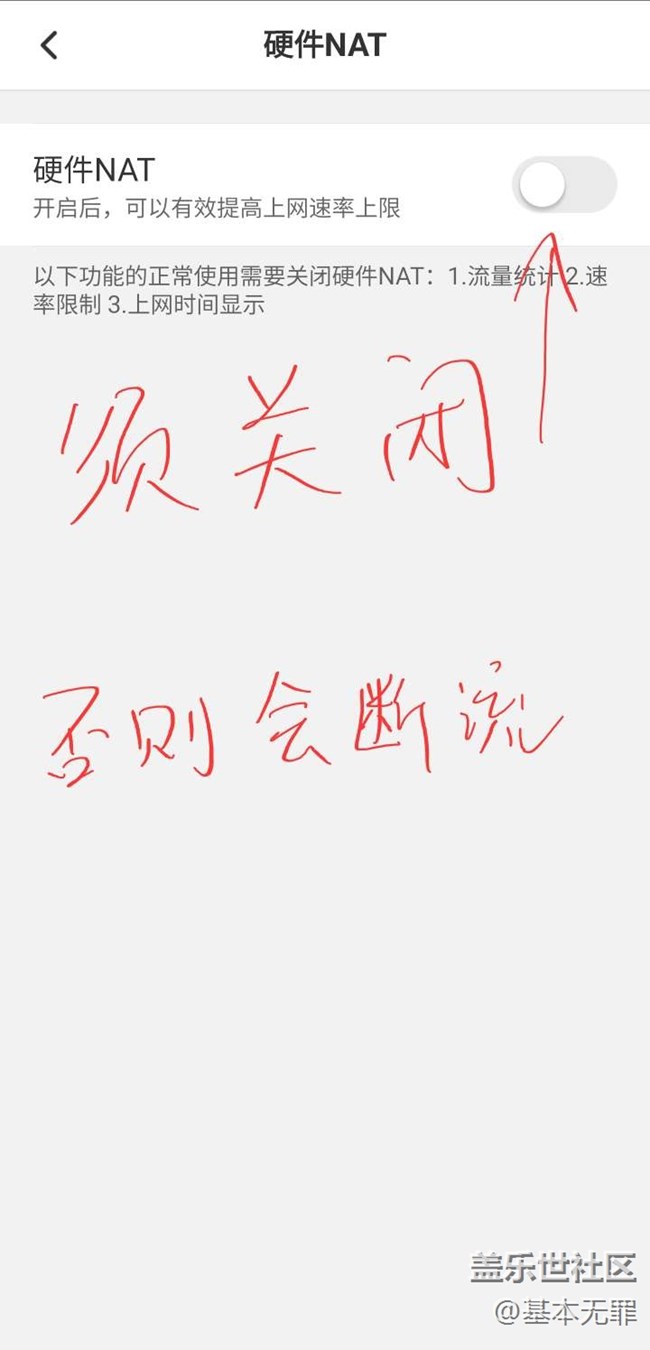 硬件NAT
硬件NAT
开启后，可以有效提高上网速率上限
以下功能的正常使用需要关闭硬件NAT：1.流量统计 2.速
率限制 3.上网时间显示
须关闭
否则会断流
盖乐世社区
@基本无罪